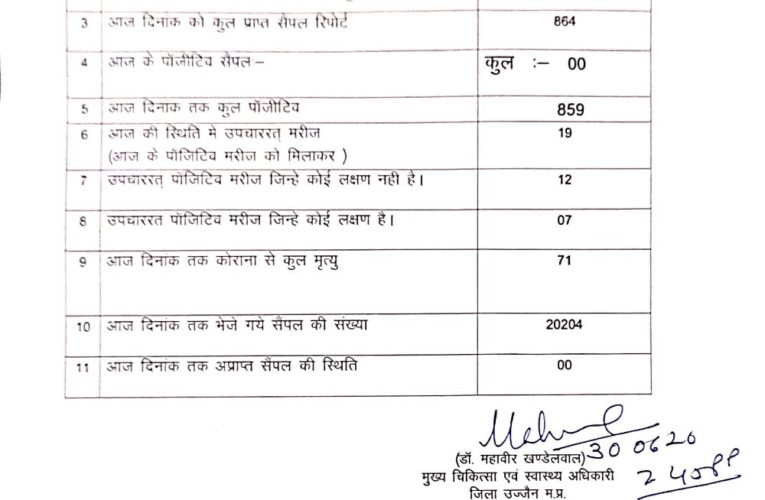 3 आज दिनांक को कुल प्राप्त सैंपल रिपोर्ट 864
4 आज के पॉजीटिव सैपल:– कुल :– 00
5 आज दिनांक तक कुल पॉजीटिव 859
6 आज की स्थिति मे उपचाररत् मरीज 19
(आज के पॉजिटिव मरीज को मिलाकर )
7 उपचाररत् पॉजिटिव मरीज जिन्हे कोई लक्षण नही है। 12
8 उपचाररत पॉजिटिव मरीज जिन्हे कोई लक्षण है। 07
9 आज दिनांक तक कोराना से कुल मृत्यु 71
10 आज दिनांक तक भेजे गये सैंपल की संख्या 20204
11 आज दिनांक तक अप्राप्त सैंपल की स्थिति 00
(डॉ. महावीर खण्डेलवाल) 30 06 20
मुख्य चिकित्सा एवं स्वास्थ्य अधिकारी
जिला उज्जैन म.प्र.